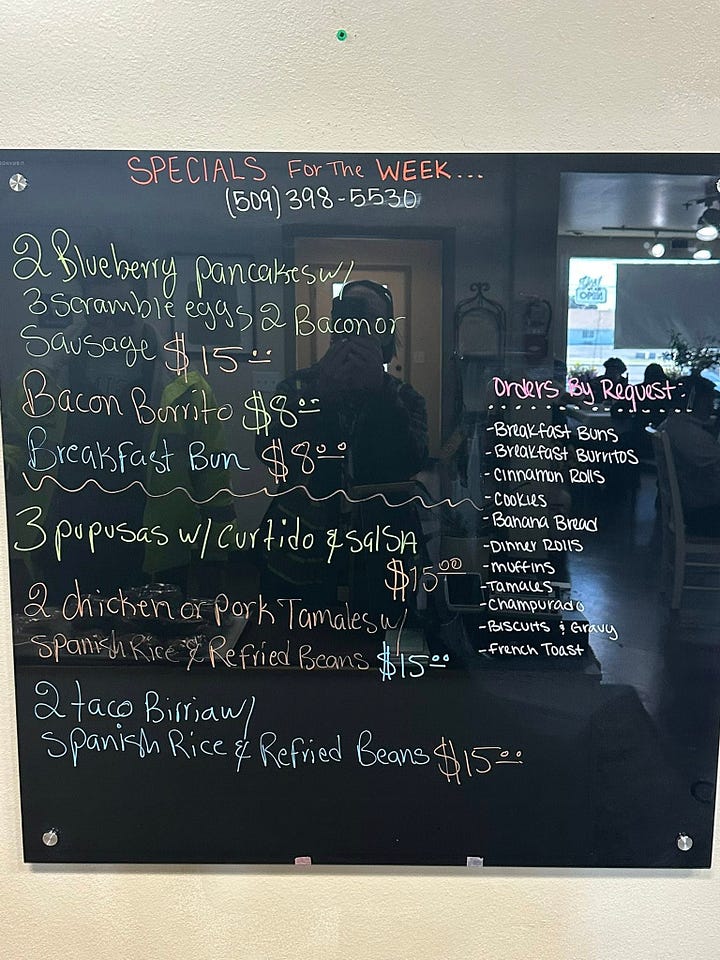 SPECIALS For The WEEK...
(509) 398-5530
2 Blueberry pancakes w/
3 scramble eggs 2 Bacon or
Sausage $15.00
Bacon Borrito $8.00
Breakfast Bun $8.00
3 pupusas w/ curtido & salsa
$15.00
2 chicken or pork Tamales w/
spanish Rice & Refried Beans $15.00
2 taco Birria w/
spanish Rice & Refried Beans $15.00
Orders By Request:
-Breakfast Buns
-Breakfast Burritos
-Cinnamon Rolls
-Cookies
-Banana Bread
-Dinner Rolls
-muffins
-Tamales
-Champurado
-Biscuits & Gravy
-French Toast
OPEN